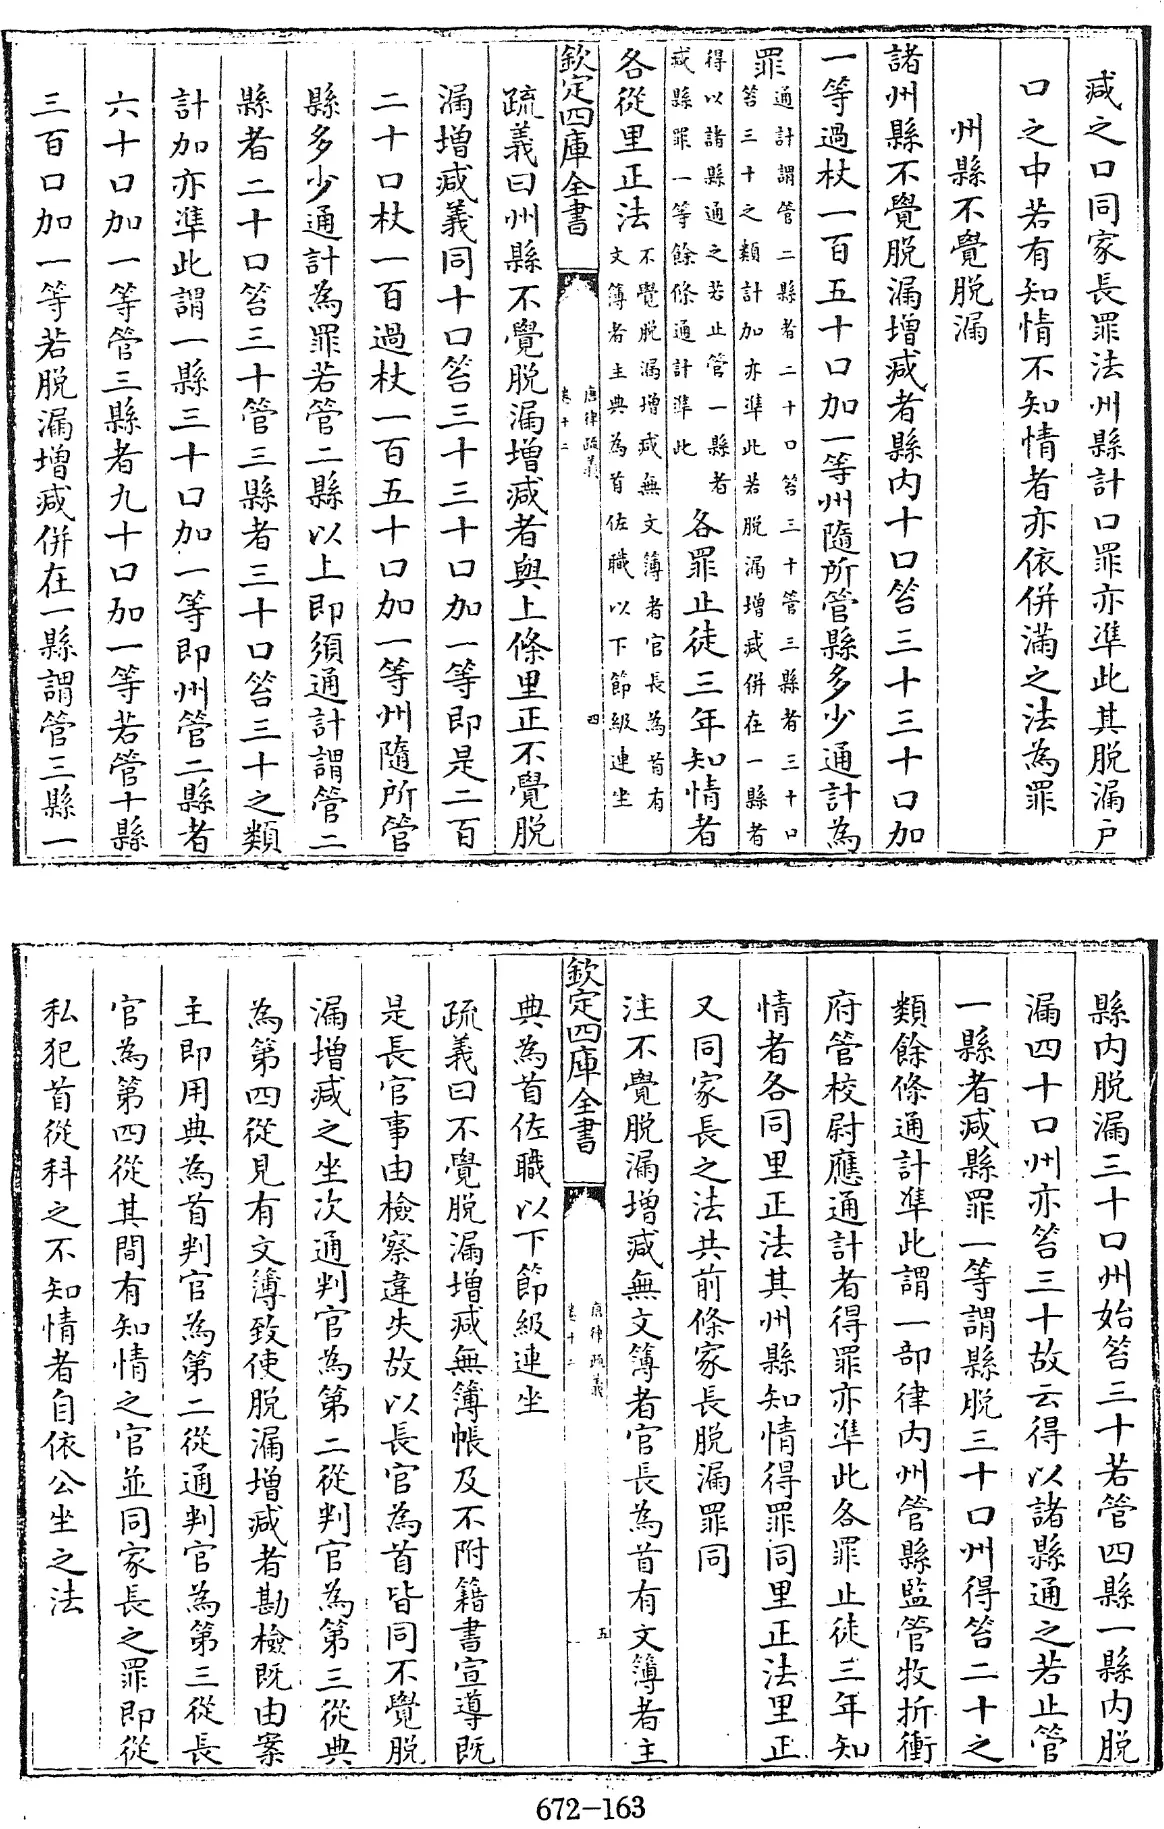 減之口同家長罪法州縣計口罪亦準此其脱漏户
口之中若有知情不知情者亦依併滿之法為罪
州縣不覺脱漏
諸州縣不覺脱漏增減者縣内十口笞三十三十口加
一等過杖一百五十口加一等州隨所管縣多少通計為
罪通計謂管二縣者二十口笞三十管三縣者三十口笞三十之類計加亦準此若脱漏增減併在一縣者
得以諸縣通之若止管一縣者減縣罪一等餘條通計準此各罪止徒三年知情者
各從里正法不覺脱漏增減無文簿者官長為首有文簿者主典為首佐職以下節級連坐
欽定四庫全書
唐律疏義
卷十二
四
疏義曰州縣不覺脱漏增減者與上條里正不覺脱
漏增減義同十口笞三十三十口加一等即是二百
二十口杖一百過杖一百五十口加一等州隨所管
縣多少通計為罪若管二縣以上即須通計謂管二
縣者二十口笞三十管三縣者三十口笞三十之類
計加亦準此謂一縣三十口加一等即州管二縣者
六十口加一等管三縣者九十口加一等若管十縣
三百口加一等若脱漏增減併在一縣謂管三縣一
縣内脱漏三十口州始笞三十若管四縣一縣内脱
漏四十口州亦笞三十故云得以諸縣通之若止管
一縣者減縣罪一等謂縣脱三十口州得笞二十之
類餘條通計準此謂一部律内州管縣監管牧折衝
府管校尉應通計者得罪亦準此各罪止徒三年知
情者各同里正法其州縣知情得罪同里正法里正
又同家長之法共前條家長脱漏罪同
注不覺脱漏增減無文簿者官長為首有文簿者主
欽定四庫全書
唐律疏義
卷十二
五
典為首佐職以下節級連坐
疏義曰不覺脱漏增減無簿帳及不附籍書宣導既
是長官事由檢察違失故以長官為首皆同不覺脱
漏增減之坐次通判官為第二從判官為第三從典
為第四從見有文簿致使脱漏增減者勘檢既由案
主即用典為首判官為第二從通判官為第三從長
官為第四從其間有知情之官並同家長之罪即從
私犯首從科之不知情者自依公坐之法
672-163